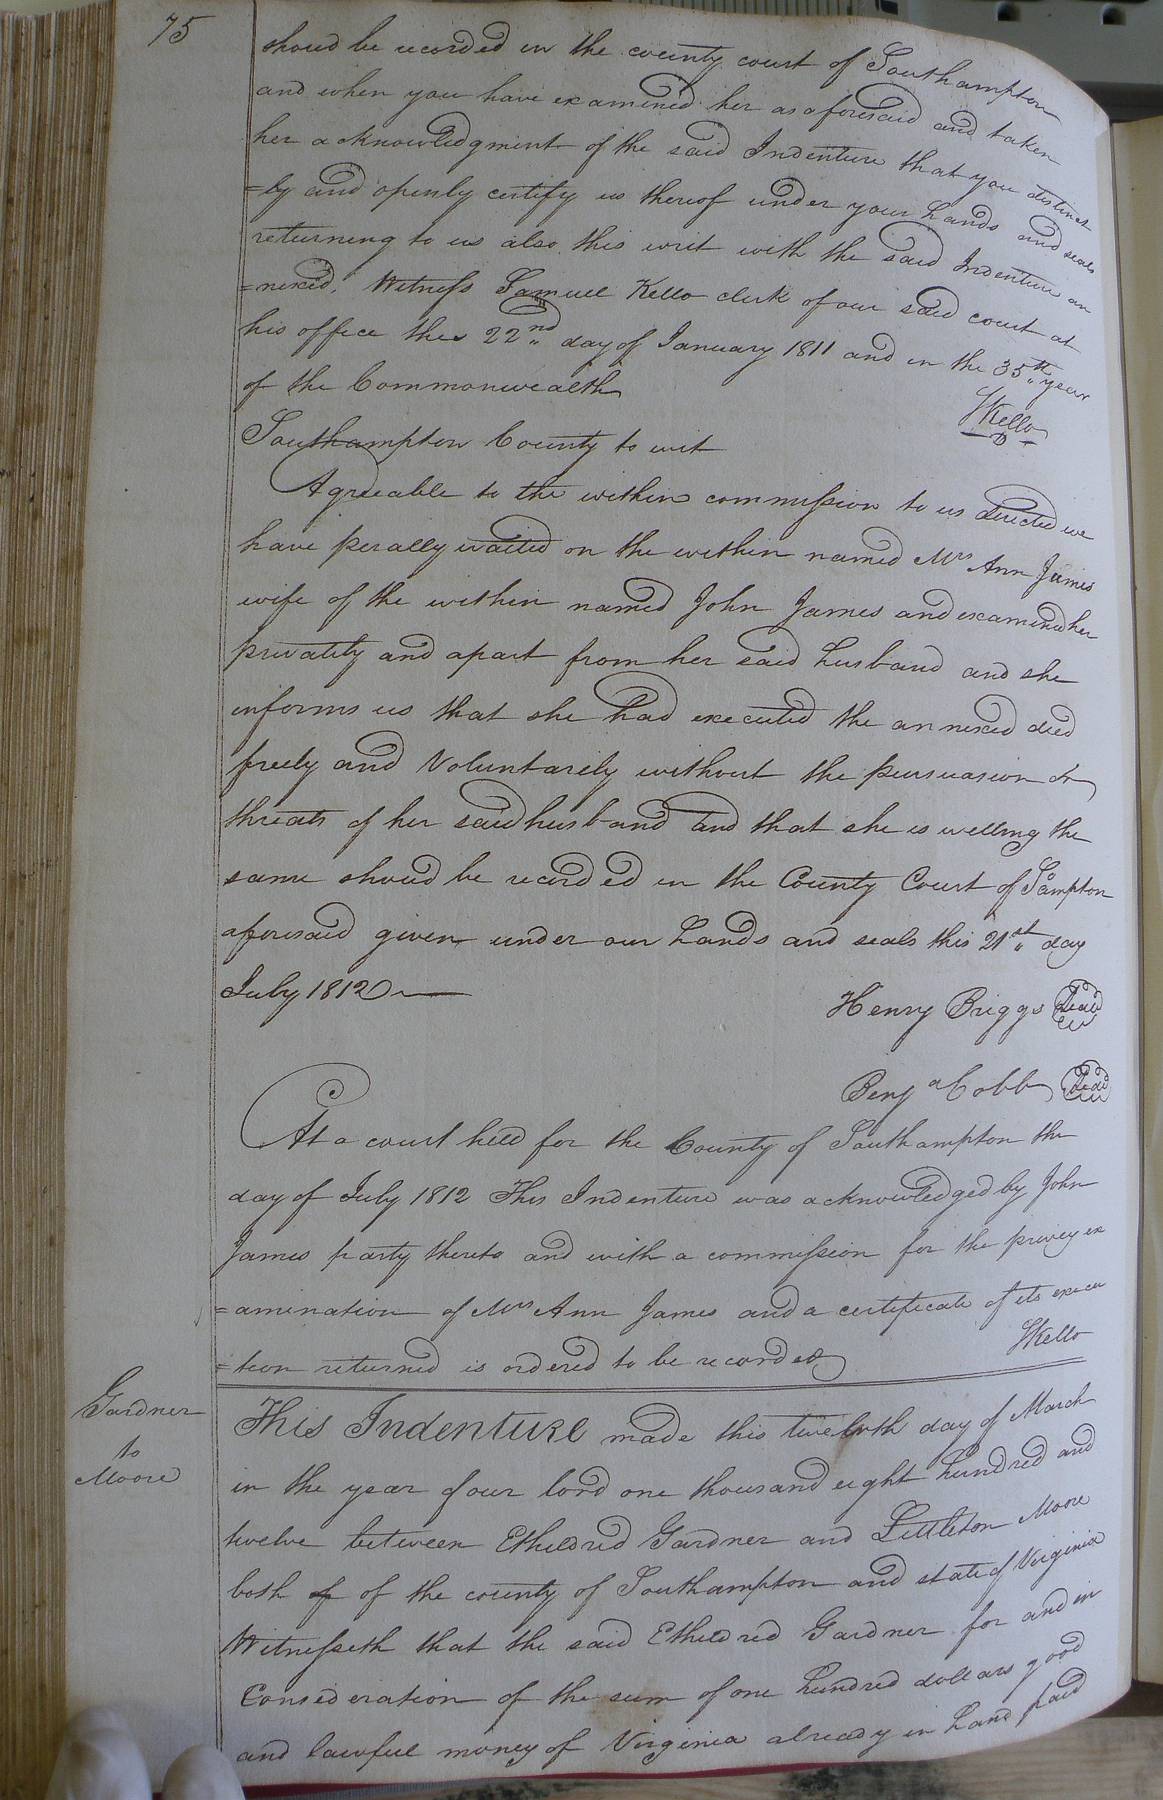 75
should be recorded in the county court of Southampton
and when you have examined her as aforesaid and taken
her acknowledgment of the said Indenture that you distinct
=ly and openly certify us thereof under your hands and seals
returning to us also this writ with the said Indenture an
=nexed. Witness Samuel Kello clerk of our said court at
his office the 22nd day of January 1811 and in the 35th year
of the Commonwealth
SKello
Southampton County to wit
Agreeable to the within commission to us directed we
have perally waited on the within named Mrs Ann James
wife of the within named John James and examined her
privately and apart from her said husband and she
informs us that she had executed the annexed deed
freely and Voluntarely without the pursuasion or
threats of her said husband and that she is welling the
same should be recorded in the County Court of S°ampton
aforesaid given under our hands and seals this 21st day
July 1812
Henry Briggs Seal
Benja Cobb Seal
At a court held for the County of Southampton the
day of July 1812 This Indenture was acknowledged by John
James party thereto and with a commission for the privey ex
=amination of Mrs Ann James and a certificate of its execu
=tion returned is ordered to be recorded
SKello
Gardner
to
Moore
This Indenture made this twelvth day of March
in the year of our lord one thousand eight hundred and
twelve between Etheldred Gardner and Littleton Moore
both of of the county of Southampton and state of Virginia
Witnesseth that the said Etheldred Gardner for and in
Consederation of the sum of one hundred dollars good
and lawful money of Virginia already in hand paid